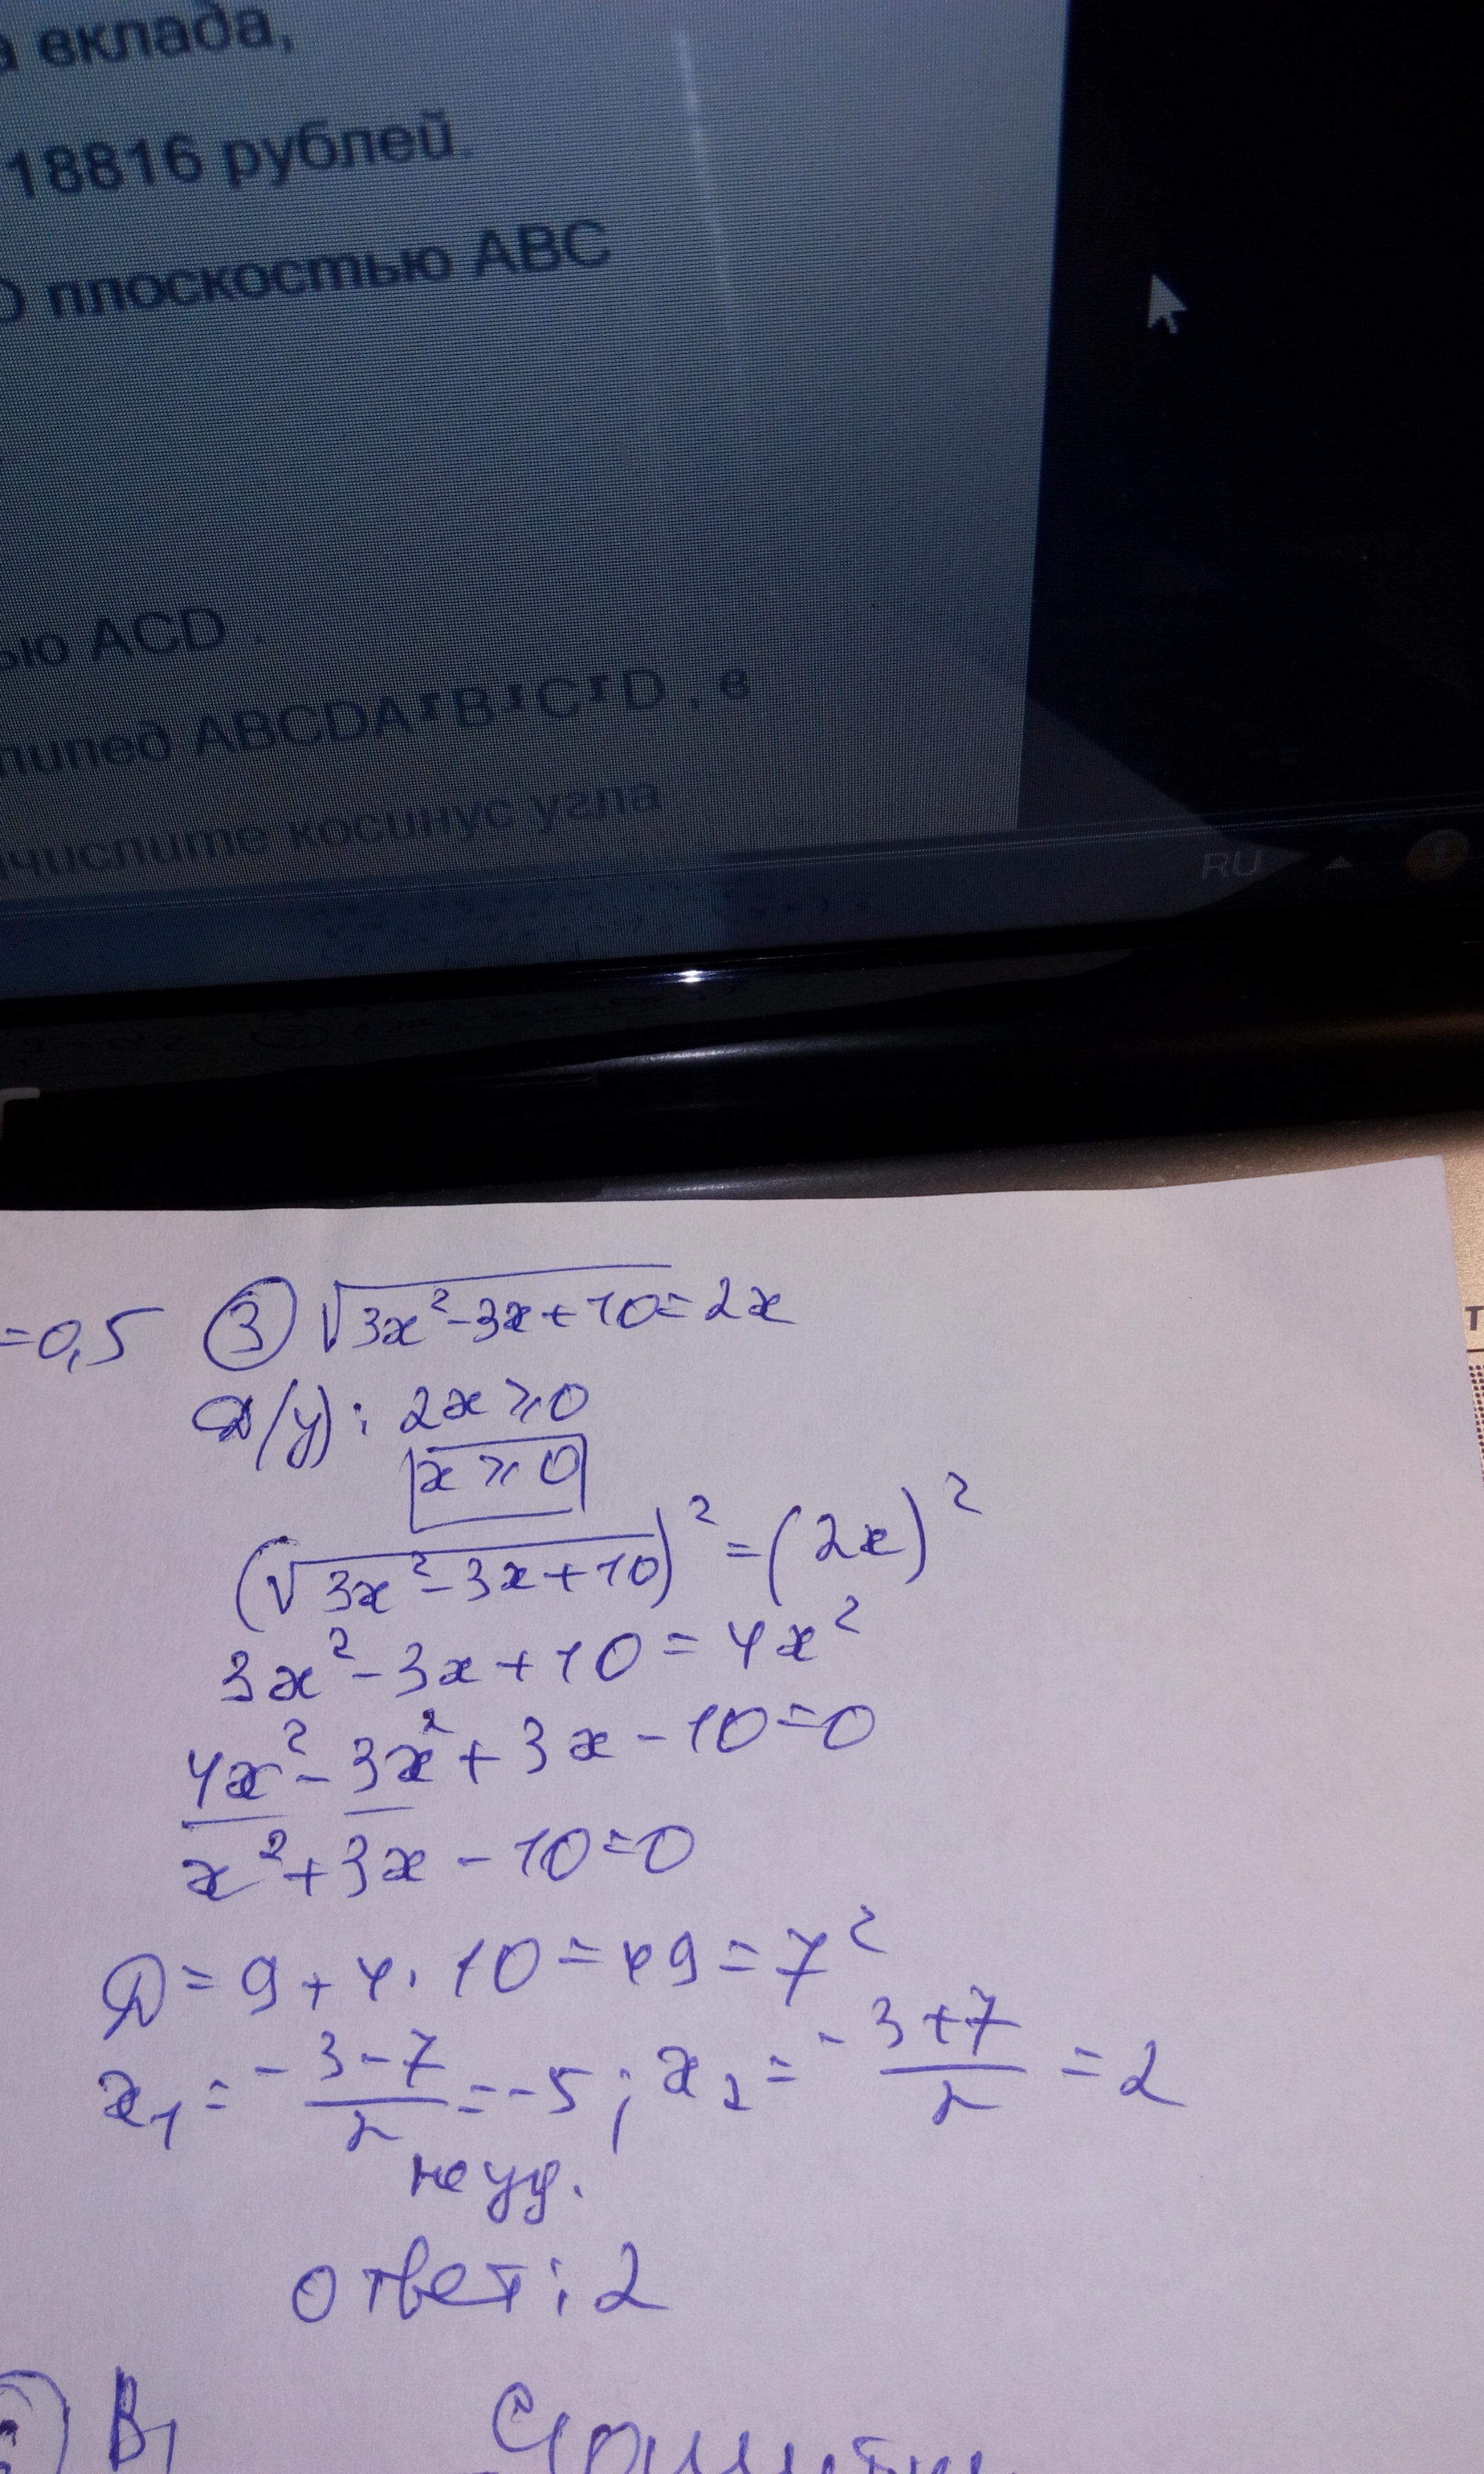 а вклада,
18816 рублей.
плоскостью ABC
ью ACD .
пипед ABCDA¹B¹C¹D , в
числите косинус угла
RU
=0,5 ③ √3x²-3x+10=2x
Д/у): 2x⩾0
x⩾0
(√3x²-3x+10)²=(2x)²
3x²-3x+10=4x²
4x²-3x²+3x-10=0
x²+3x-10=0
Д=9+4·10=49=7²
x₁=-3-7/2=-5; x₂=-3+7/2=2
не уд.
ответ: 2
B₁